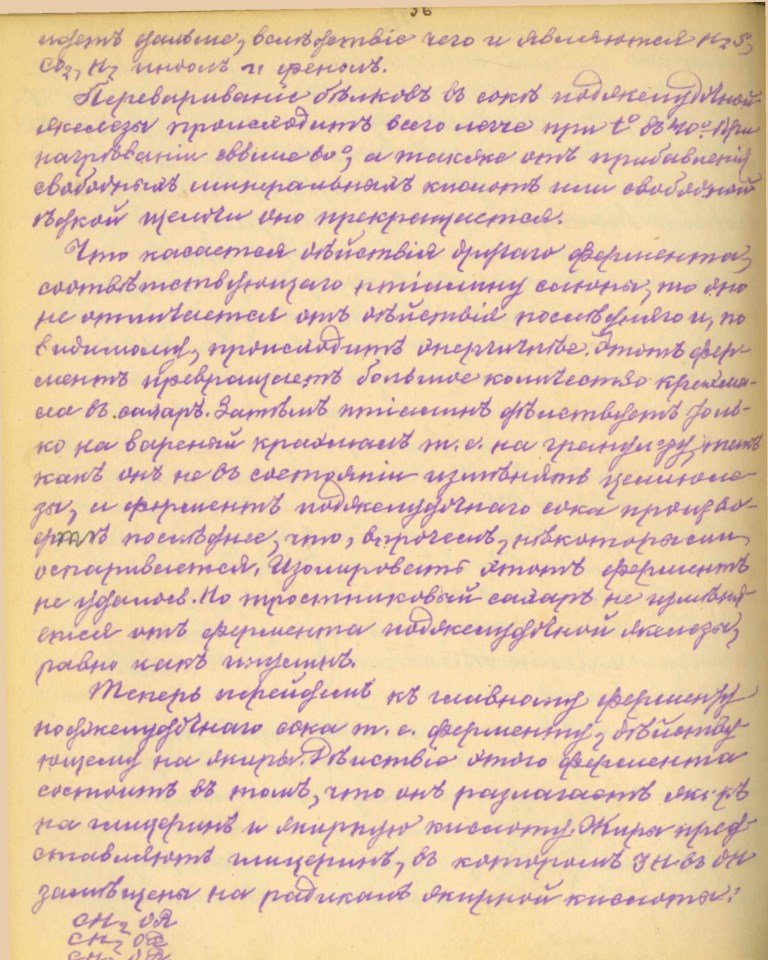 36
идетъ дальше, вслѣдствіе чего и являются H2S,
CO2, H2 индолъ и фенолъ.
Перевариваніе бѣлковъ въ сокѣ поджелудочной
железы происходитъ всего легче при t° въ 40°. При
нагрѣваніи свыше 60°, а также отъ прибавленія
свободныхъ минеральныхъ кислотъ или свободной
ѣдкой щелочи оно прекращается.
Что касается дѣйствія другаго фермента,
соотвѣтствующаго птіалину слюны, то оно
не отличается отъ дѣйствія послѣдняго и, по
видимому, происходитъ энергичнѣе. Этотъ фер-
ментъ превращаетъ большое количество крахма-
ла въ сахаръ. Затѣмъ птіалинъ дѣйствуетъ толь-
ко на вареный крахмалъ т. е. на гранулезу, такъ
какъ онъ не въ состояніи измѣнять целлюло-
зы, и ферментъ поджелудочнаго сока произво-
дитъ послѣднее, что, впрочемъ, нѣкоторыми
оспаривается. Изолировать этотъ ферментъ
не удалось. Но тростниковый сахаръ не измѣня-
ется отъ фермента поджелудочной железы,
равно какъ инулинъ.
Теперь перейдемъ къ главному ферменту
поджелудочнаго сока т. е. ферменту, дѣйству-
ющему на жиры. Дѣйствіе этого фермента
состоитъ въ томъ, что онъ разлагаетъ жиръ
на глицеринъ и жирную кислоту. Жиры пред-
ставляютъ глицеринъ, въ которомъ 3H въ OH
замѣщены на радикалъ жирной кислоты:
CH2 OR
CH2 OR
CH2 OR